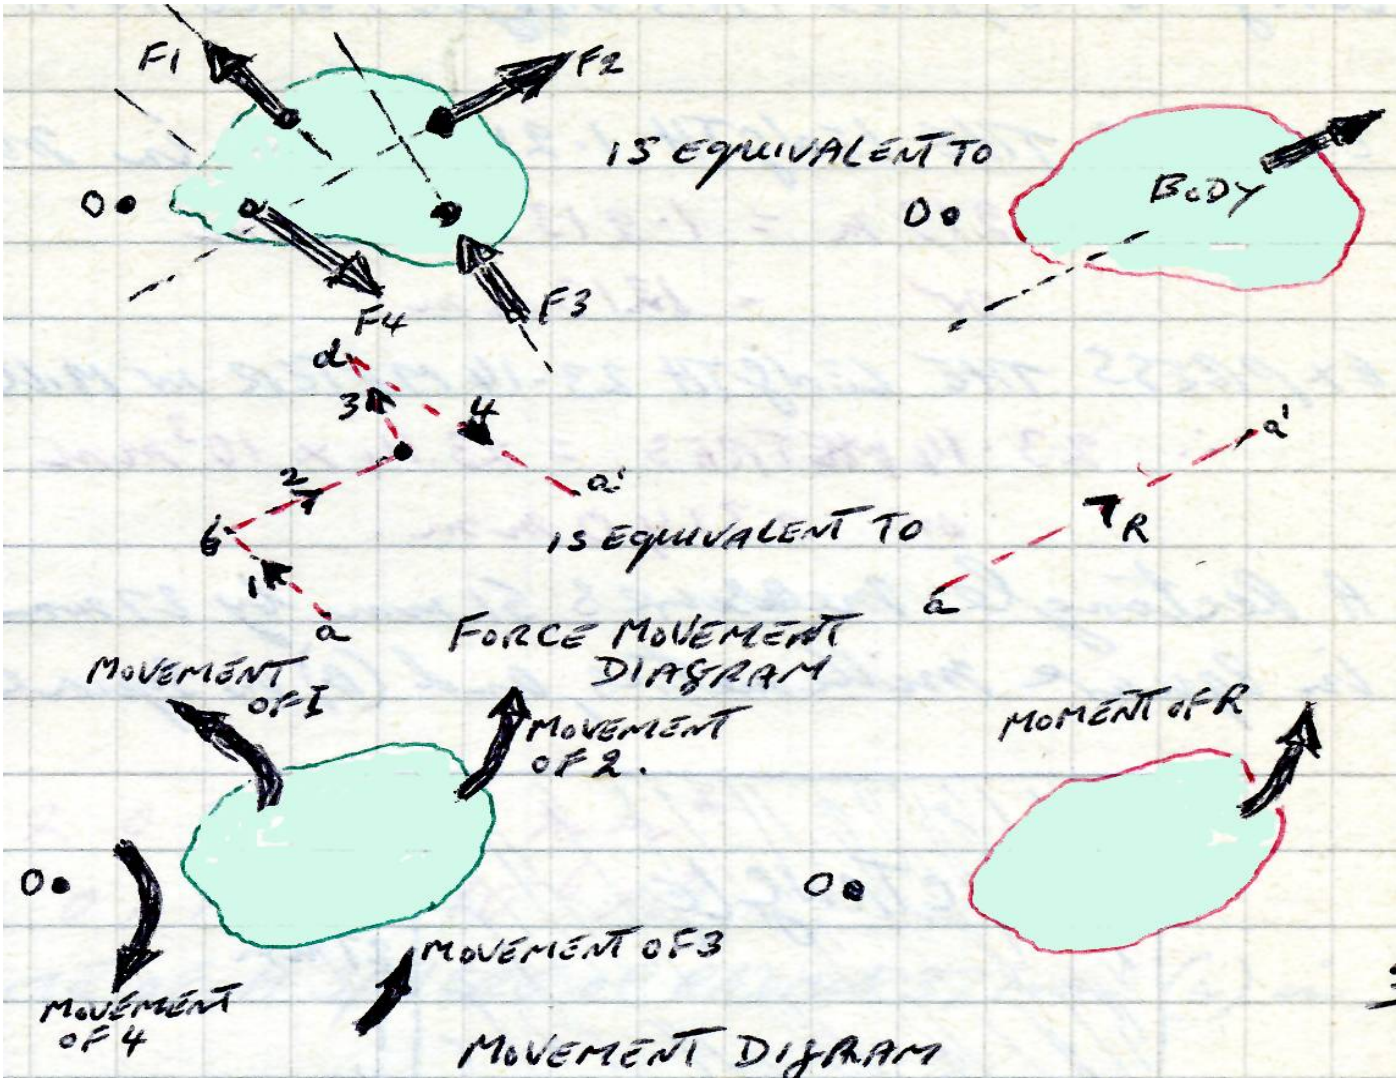 F1
F2
IS EQUIVALENT TO
BODY
O
O
F3
F4
d
3
4
a'
2
a'
b
IS EQUIVALENT TO
R
1
a
a
FORCE MOVEMENT
DIAGRAM
MOVEMENT
OF I
MOVEMENT
OF 2.
MOMENT OF R
O
O
MOVEMENT OF 3
MOVEMENT
OF 4
MOVEMENT DIGRAM